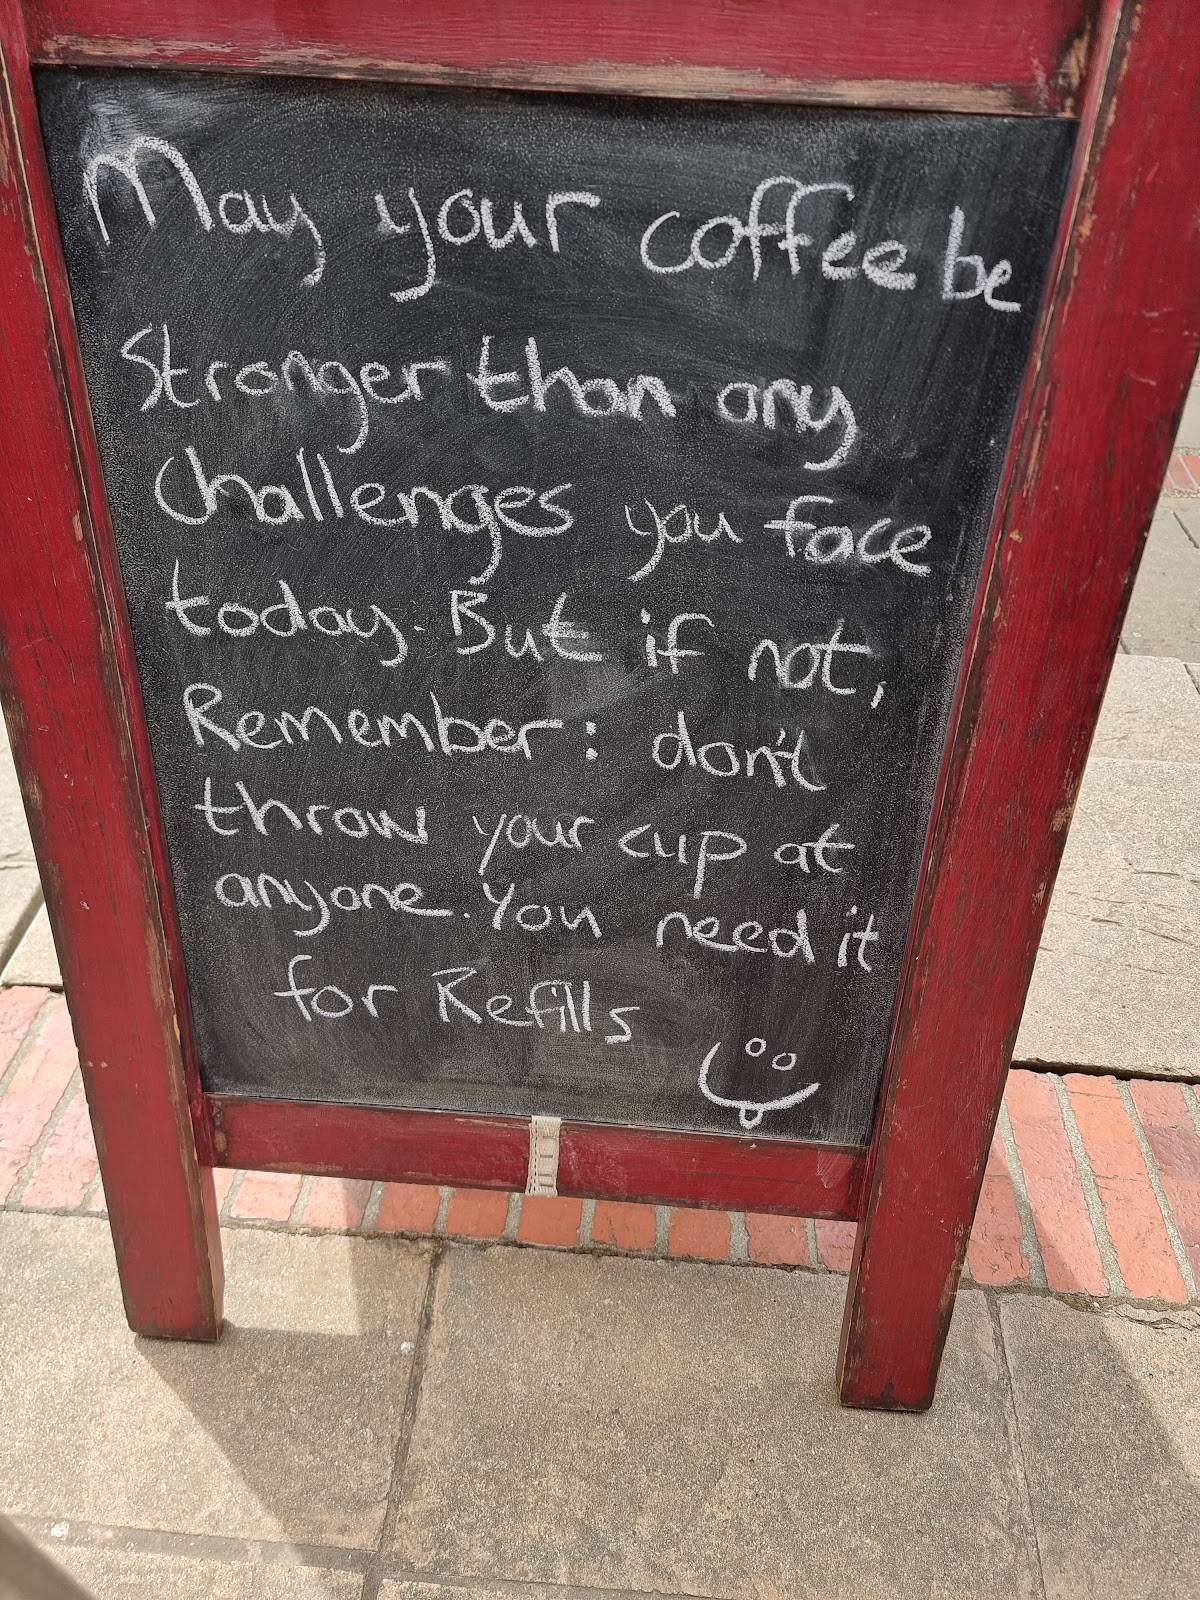 May your coffee be
Stronger than any
challenges you face
today. But if not,
Remember: don't
throw your cup at
anyone. You need it
for Refills